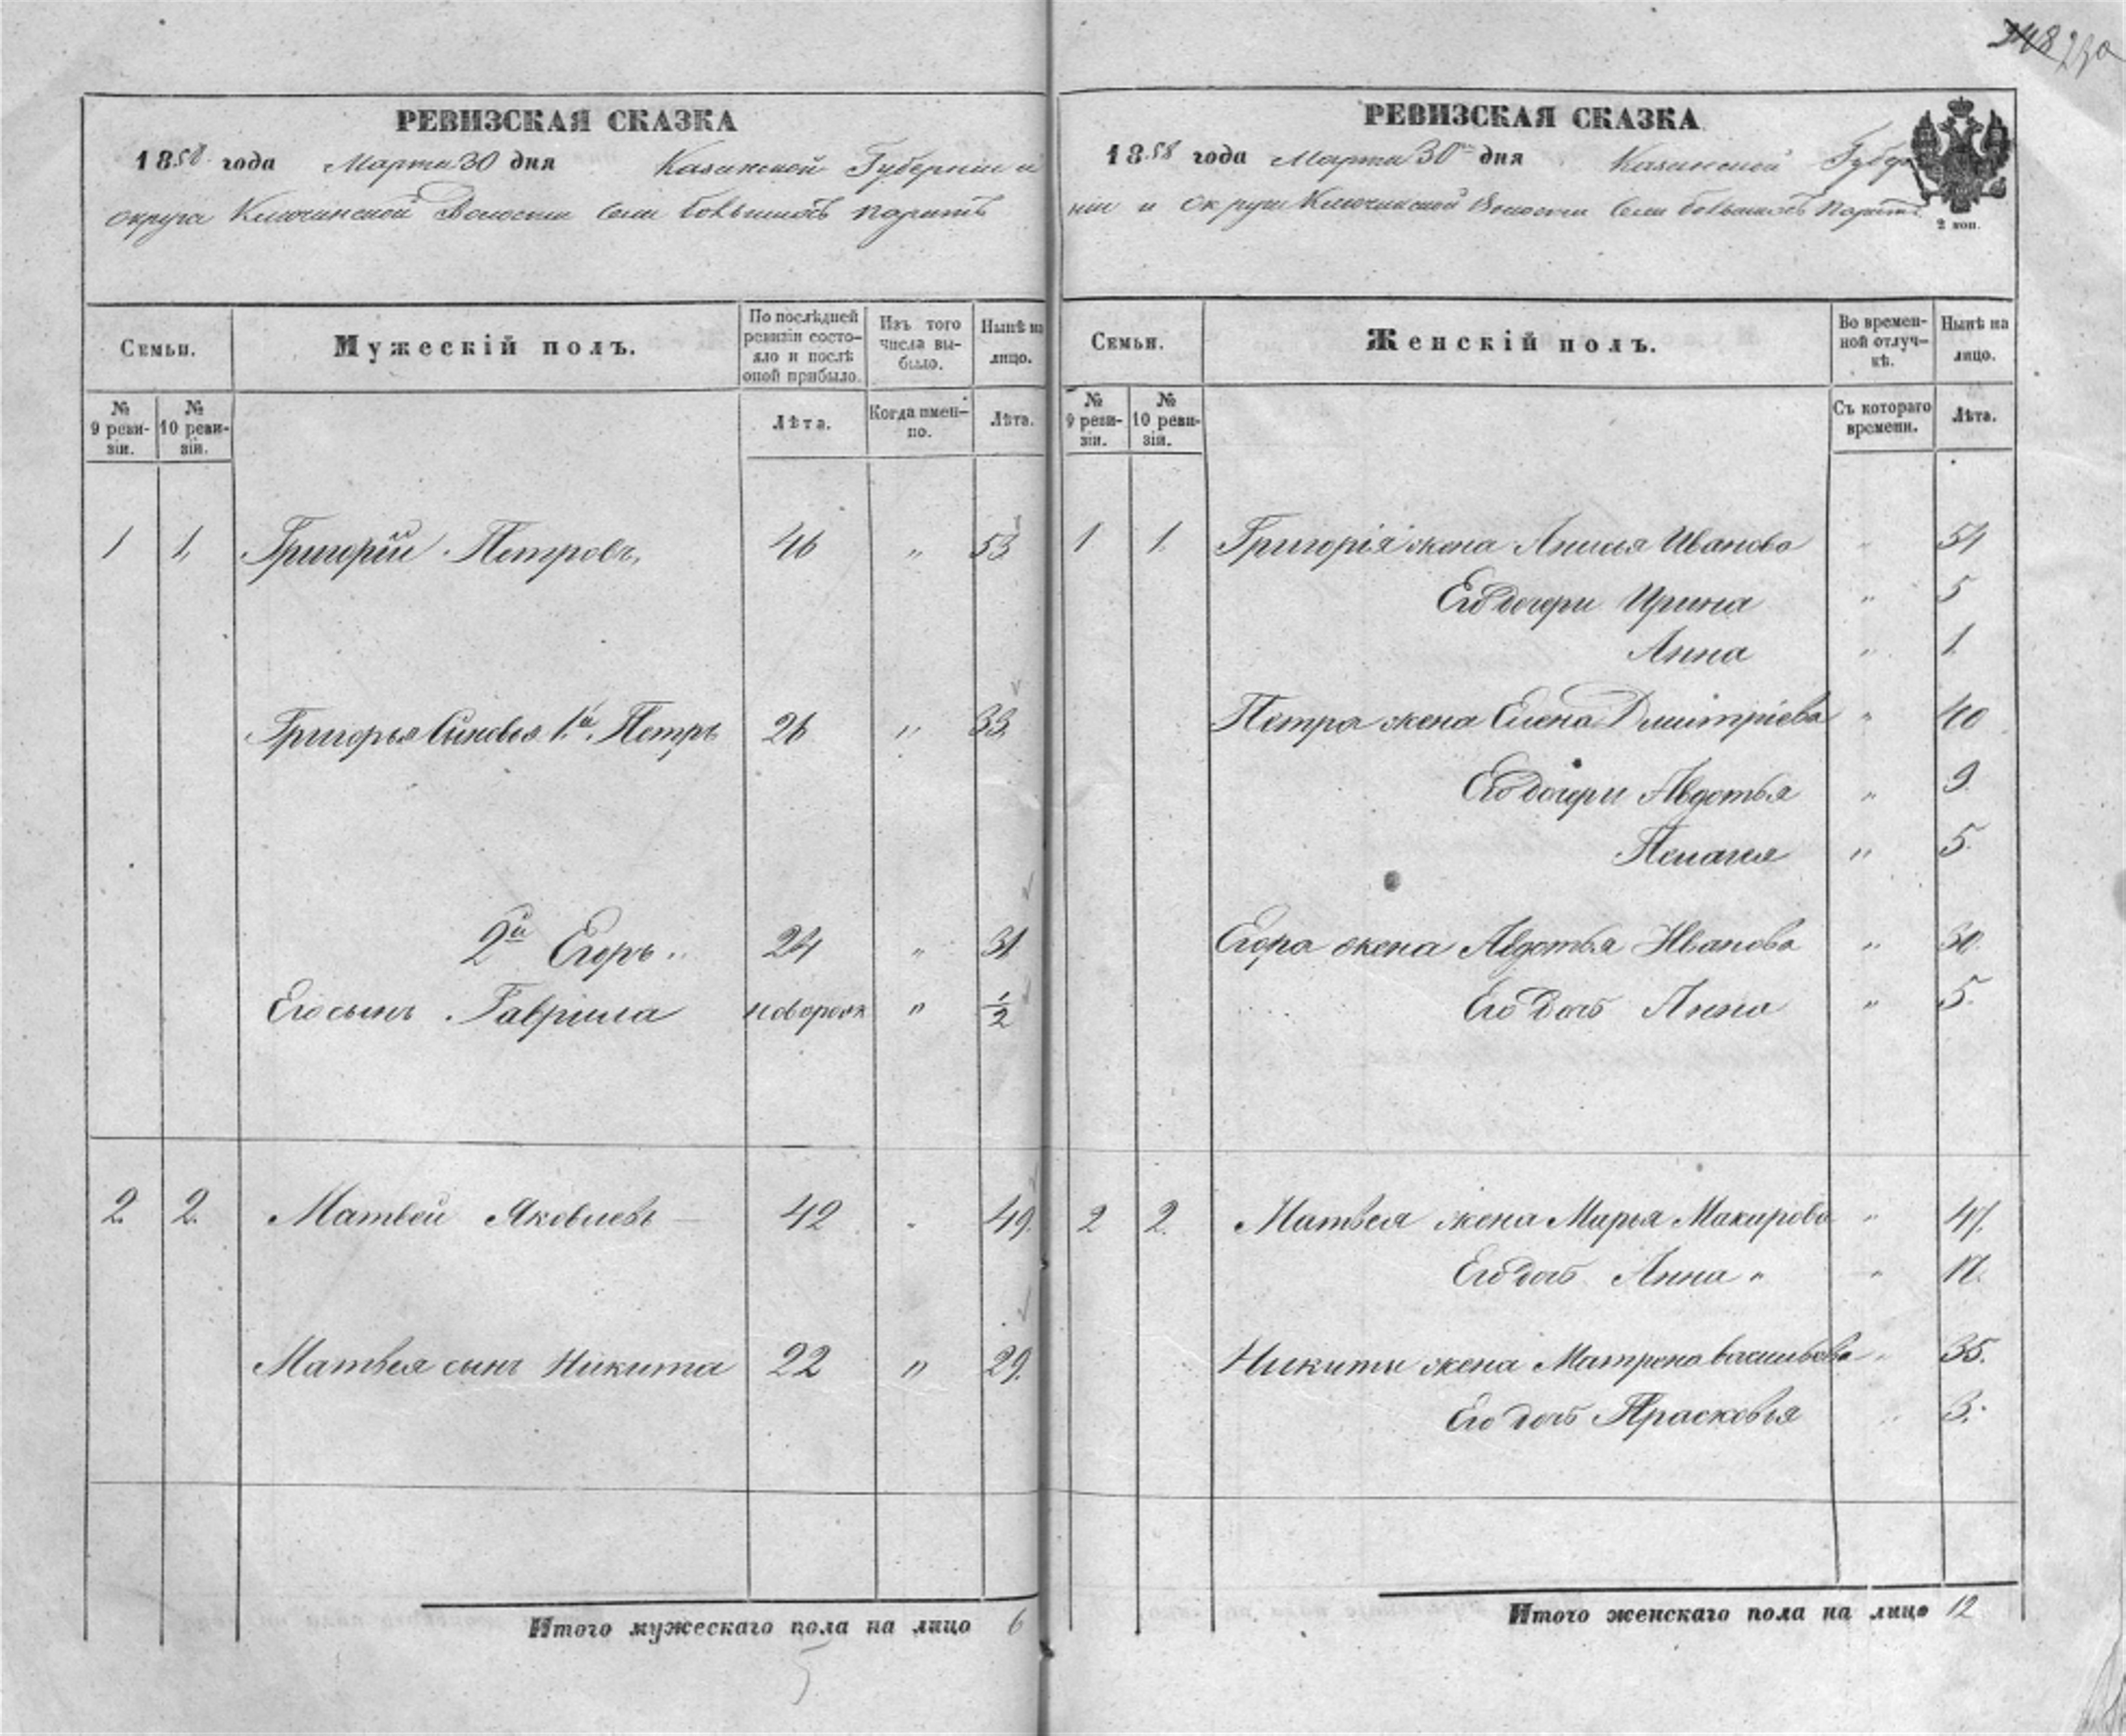 РЕВИЗСКАЯ СКАЗКА
1858 года Марта 30 дня Казанской Губерніи и
округа Ключинской Волости Села большихъ
Семьи.
Мужескій полъ.
По послѣдней ревизіи состояло и послѣ оной прибыло.
Изъ того числа выбыло.
Нынѣ на лицо.
№ 9 ревизіи.
№ 10 ревизіи.
Лѣта.
Когда именно.
Лѣта.
1 1. Григорій Петровъ, 46 " 53
Григорья Сыновья 1й. Петръ 26 " 33.
2й Егоръ 24 " 31
Его сынъ Гаврила новорож " 1/2
2. 2. Матвей Яковлевъ 42 " 49.
Матвея сынъ Никита 22 " 29.
Итого мужескаго пола на лицо 6
348
РЕВИЗСКАЯ СКАЗКА
1858 года Марта 30 дня Казанской Губер
ніи и округи Ключинской Волости Села большихъ
2 коп.
Семьи.
Женскій полъ.
Во временной отлучкѣ.
Нынѣ на лицо.
№ 9 ревизіи.
№ 10 ревизіи.
Съ котораго времени.
Лѣта.
1 1. Григорія жена Анисья Иванова " 54
Его дочери Ирина " 5
Анна " 1.
Петра жена Елена Дмитріева " 40
Его дочери Авдотья " 9.
Пелагея " 5.
Егора жена Авдотья Иванова " 30.
Его дочь Анна " 5.
2 2. Матвея жена Марья Макарова " 47.
Его дочь Анна " " 17.
Никиты жена Матрена васильева " 35.
Его дочь Прасковья " 3.
Итого женскаго пола на лицо 12